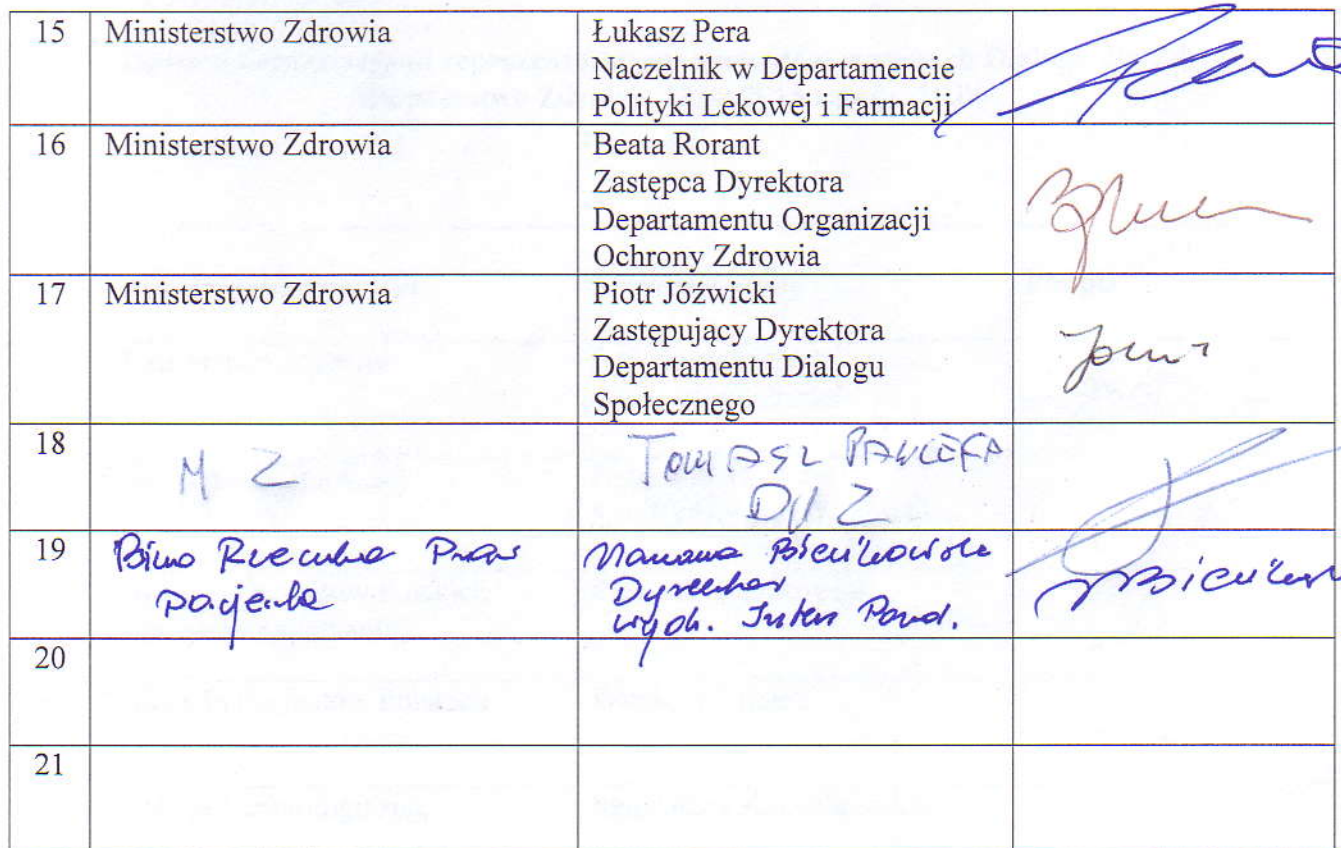 15 Ministerstwo Zdrowia Łukasz Pera
Naczelnik w Departamencie
Polityki Lekowej i Farmacji
16 Ministerstwo Zdrowia Beata Rorant
Zastępca Dyrektora
Departamentu Organizacji
Ochrony Zdrowia
17 Ministerstwo Zdrowia Piotr Jóźwicki
Zastępujący Dyrektora
Departamentu Dialogu
Społecznego
18 M Z TOMASZ
19 Biuro Rzecznika Praw
pacjenta
Dyrektor
20
21